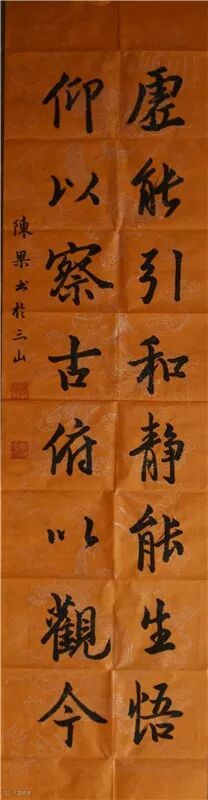 虚能引和静能生悟
仰以察古俯以觀今
陳果书於三山